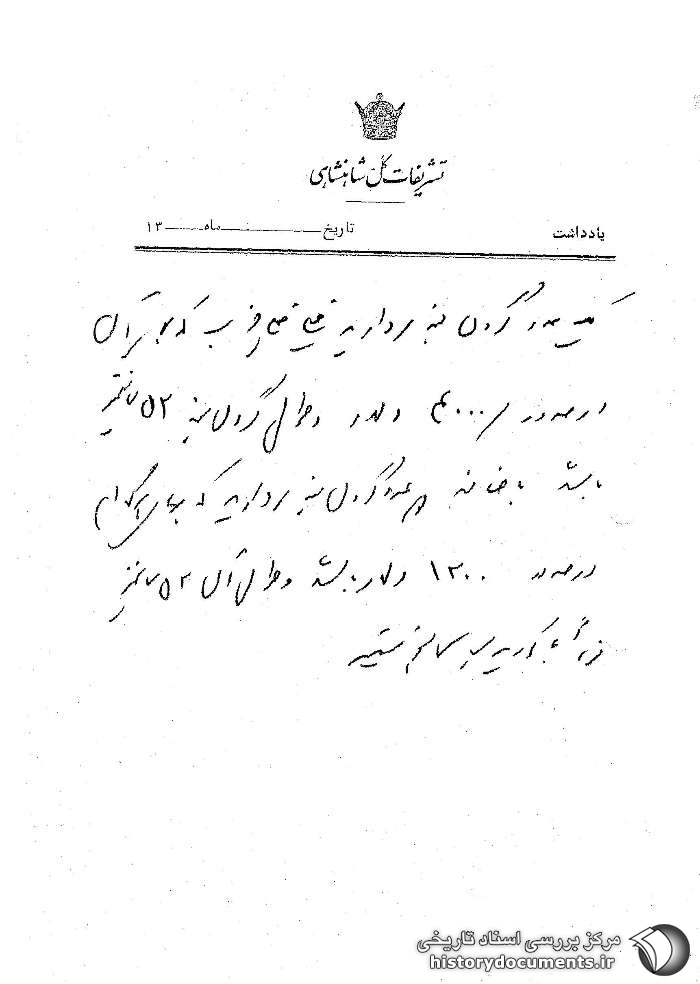 تشریفات کل شاهنشاهی
یادداشت
تاریخ ماه ۱۳
یک عدد گردن بند مروارید خیلی خیلی خوب که بهای آن
در حدود ۴۰۰۰۰ دلار و طول گردن بند ۵۲ سانتیمتر
باشد باضافه عدد گردن بند مروارید که بهای هر کدام
در حدود ۱۲۰۰ دلار باشد و طول آن ۵۲ سانتیمتر
مرکز بررسی اسناد تاریخی
historydocuments.ir